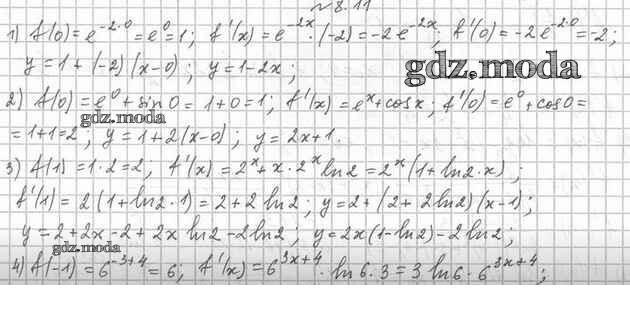 №8.11
1) f(0)=e^{-2·0}=e^0=1; f'(x)=e^{-2x}·(-2)=-2e^{-2x}; f'(0)=-2e^{-2·0}=-2;
y=1+(-2)(x-0); y=1-2x;
gdz.moda
2) f(0)=e^0+sin0=1+0=1; f'(x)=e^x+cosx; f'(0)=e^0+cos0=
gdz.moda
=1+1=2; y=1+2(x-0); y=2x+1.
3) f(1)=1·2=2, f'(x)=2^x+x·2^x ln2=2^x(1+ln2·x);
f'(1)=2(1+ln2·1)=2+2ln2; y=2+(2+2ln2)(x-1);
y=2+2x-2+2x ln2-2ln2; y=2x(1-ln2)-2ln2;
gdz.moda
4) f(-1)=6^{-3+4}=6; f'(x)=6^{3x+4}·ln6·3=3ln6·6^{3x+4};